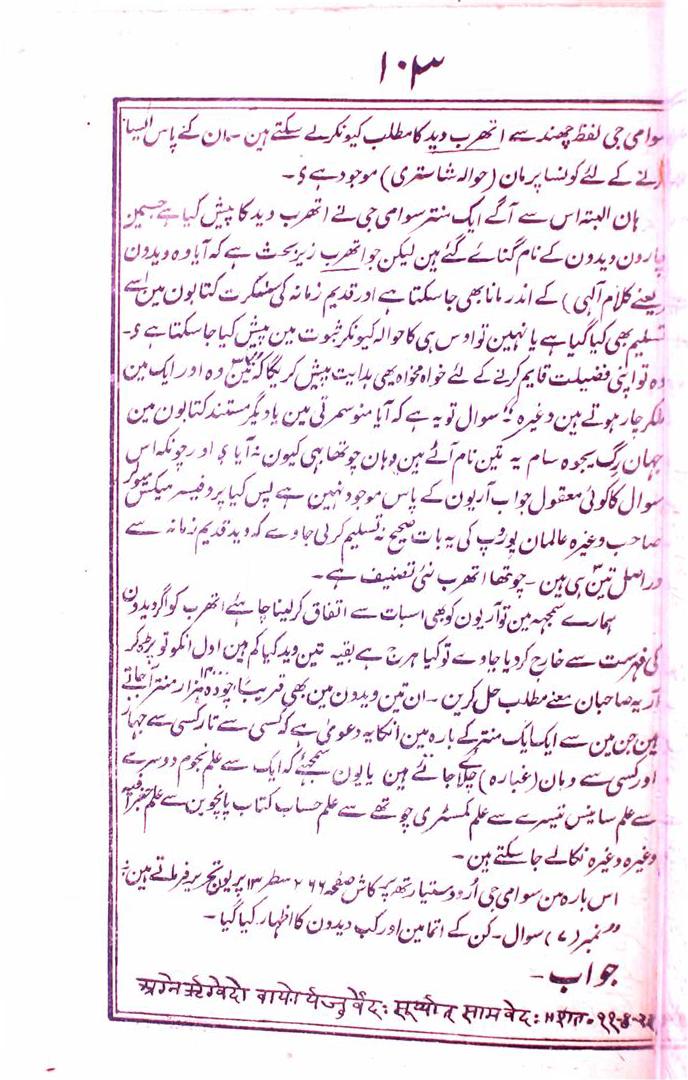 ۱۰۳
سوامی جی لفظ چھند سے اتھرب وید کا مطلب کیونکر لے سکتے ہین ۔ ان کے پاس ایسا
کرنے کے لئے کونسا پرمان (حوالہ شاستری) موجود ہے ؟ ۔
ہان البتہ اس سے آگے ایک منتر سوامی جی نے اتھرب وید کا پیش کیا ہے جسمین
چارون ویدون کے نام گنائے گئے ہین لیکن جو اتھرب زیر بحث ہے کہ آیا وہ ویدون
(یعنے کلام آلہی) کے اندر مانا بھی جا سکتا ہے اور قدیم زمانہ کی سنسکرت کتابون مین اسے
تسلیم بھی کیا گیا ہے یا نہین تو اوس ہی کا حوالہ کیونکر ثبوت مین پیش کیا جا سکتا ہے ؟ ۔
وہ تو اپنی فضیلت قایم کرنے کے لئے خواہ مخواہ بھی ہدایت پیش کریگا کہ تین وہ اور ایک مین
ملکر چار ہوتے ہین وغیرہ ۔ سوال تو یہ ہے کہ آیا منوسمرتی مین یا دیگر مستند کتابون مین
جہان رگ یجوہ سام یہ تین نام آئے ہین وہان چوتھا ہی کیون نہ آیا ؟ اور چونکہ اس
سوال کا کوئی معقول جواب آریون کے پاس موجود نہین ہے پس کیا پروفیسر میکس میولر
صاحب وغیرہ عالمان یوروپ کی یہ بات صحیح نہ تسلیم کر لی جاوے کہ وید قدیم زمانہ سے
دراصل تین ہی ہین ۔ چوتھا اتھرب نئی تصنیف ہے ۔
ہمارے سمجہہ مین تو آریون کو بھی اسبات سے اتفاق کر لینا چاہئے اتھرب کو اگر ویدون
کی فہرست سے خارج کر دیا جاوے تو کیا ہرج ہے بقیہ تین وید کیا کم ہین اول انکو تو پڑھ کر
آریہ صاحبان معنے مطلب حل کرین ۔ ان تین ویدون مین بھی قریباً ۱۴۰۰۰ چودہ ہزار منتر آ جاتے
ہین جن مین سے ایک ایک منتر کے بارہ مین انکا یہ دعویٰ ہے کہ کسی سے تار کسی سے جہاز
اور کسی سے ومان (غبارہ) چلائے جاتے ہین یا یون سمجھئے کہ ایک سے علم نجوم دوسرے
سے علم ساینس تیسرے سے علم کمسٹری چوتھے سے علم حساب کتاب پانچوین سے علم جغرافیہ
وغیرہ وغیرہ نکالے جا سکتے ہین ۔
اس بارہ من سوامی جی اُردو ستیارتھ پرکاش صفحہ ۲۶۶ سطر ۱۳ پر یون تحریر فرماتے ہین :
"نمبر (۷) سوال ۔ کن کے اتما مین اور کب ویدون کا اظہار کیا گیا ۔
جواب ۔
अग्नेर्ऋग्वेदो वायोर्यजुर्वेद: सूर्य्यात् सामवेद: ॥ शत॰ ११-४-२३